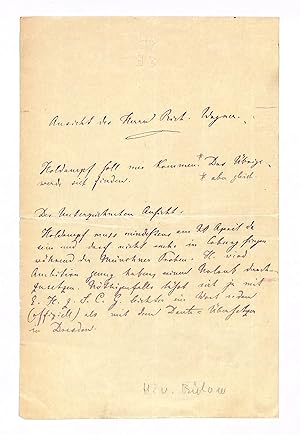 Ansicht des Herrn Rich. Wagner.
Holdampf soll nur kommen! Das Übrige
* aber gleich
werde sich finden.
Des Unterzeichneten Ansicht.
Holdampf muss mindestens am 24 April da
sein und darf nicht mehr in Coburg singen
während der Münchner Proben. Er wird
Ambition genug haben seinen Urlaub durch-
zusetzen. Nöthigenfalls läßt sich ja mit
S. H. z. S. C. G. leicht ein Wort reden
(offiziell) als mit dem
in Dresden.
H. v. Bülow